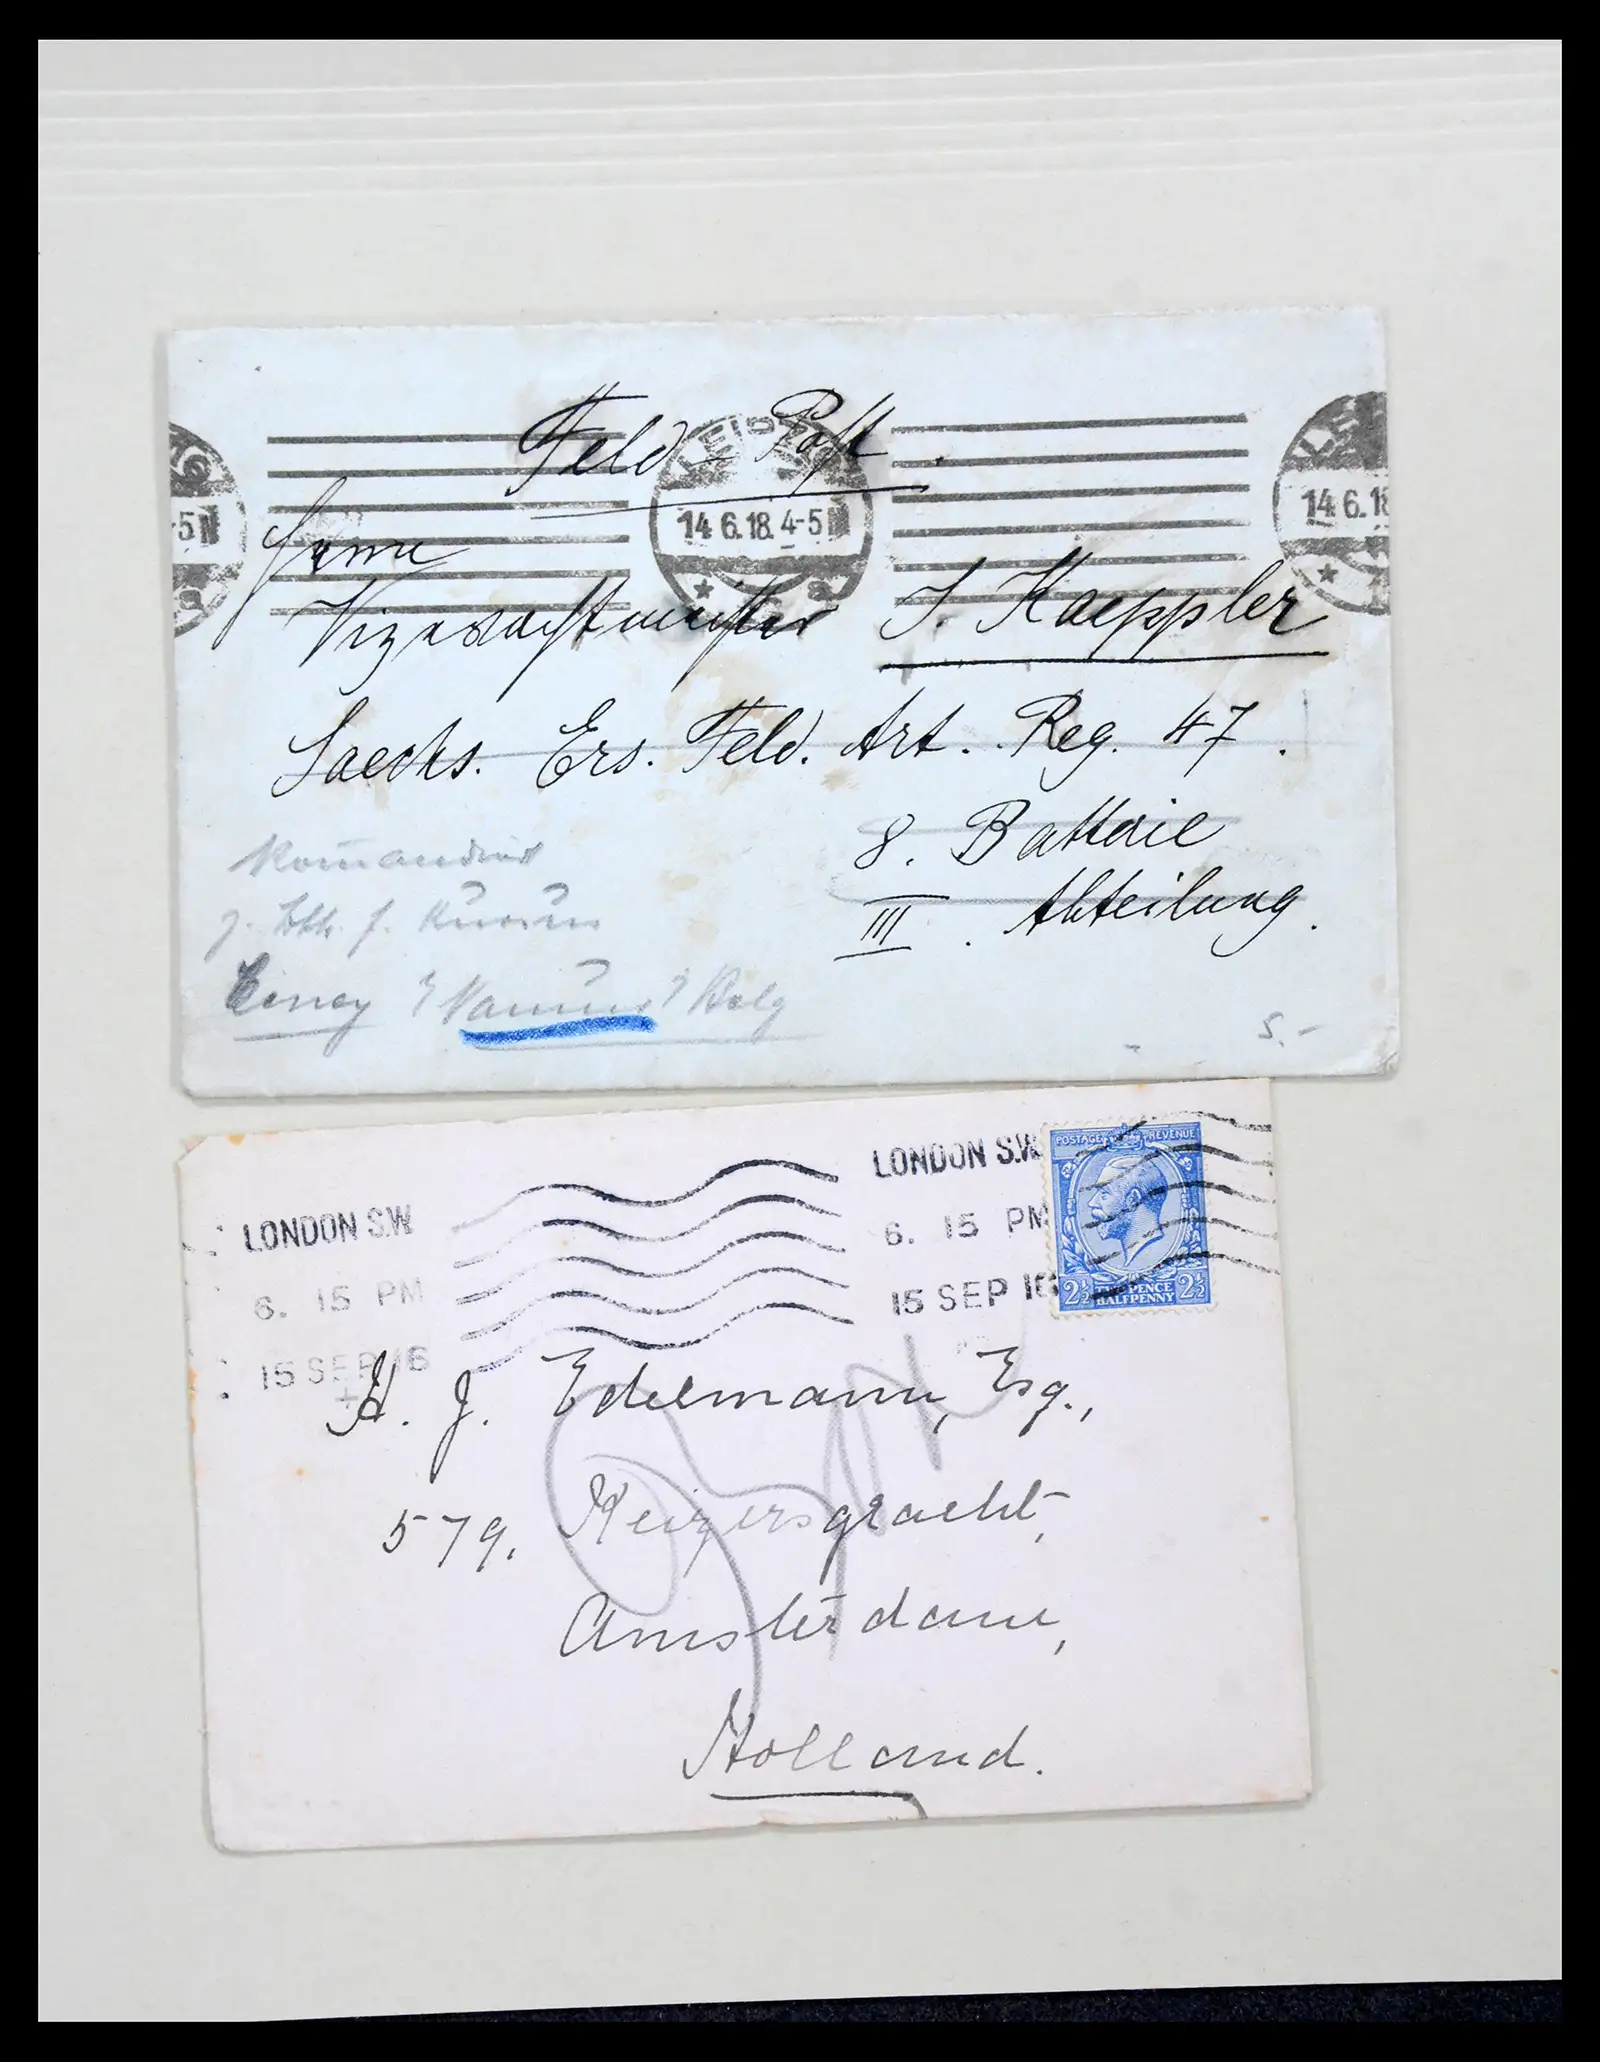 Feld-Post.
LEIPZIG
14.6.18. 4-5 N
14.6.18
-5 N
Herrn
Vizewachtmeister J. Kaeppler
Saechs. Ers. Feld. Art. Reg. 47.
8. Batterie
III. Abteilung.
Ciney Belg
5.-
LONDON S.W.
6. 15 PM
15 SEP 16
LONDON S.W
6. 15 PM
15 SEP 16
POSTAGE REVENUE
2½ PENCE HALFPENNY 2½
H. J. Edelmann, Esq.,
579, Keizersgracht,
Amsterdam,
Holland.